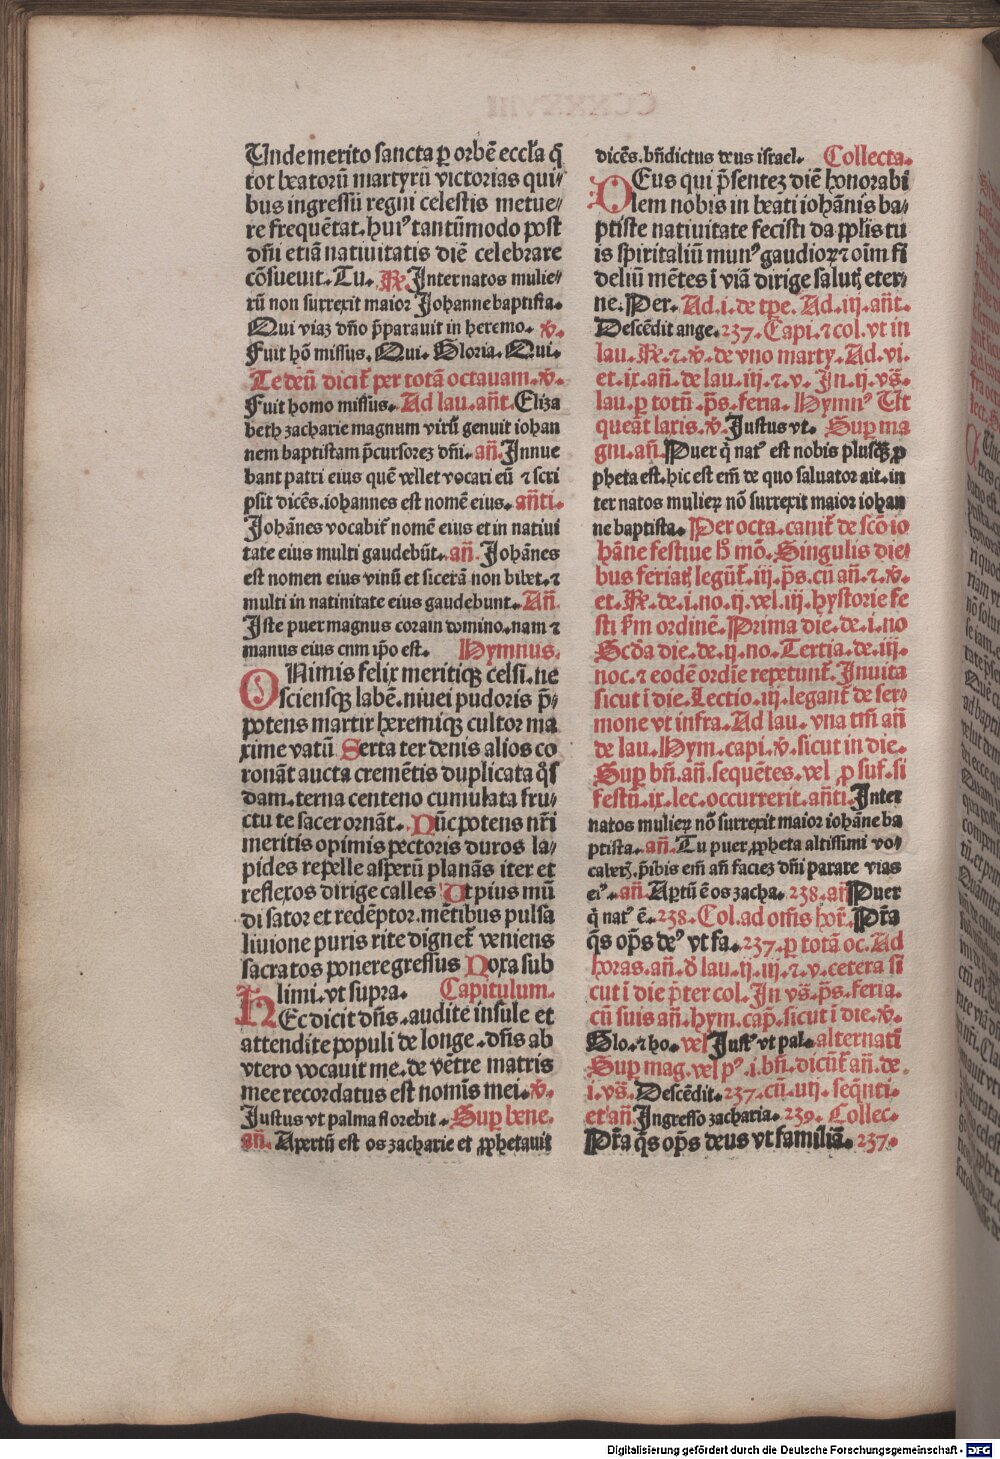 Unde merito sancta ꝑ orbē eccl̄a q̄
tot beatorū martyrū victorias qui⸗
bus ingressū regni celestis metue⸗
re frequētat. huiꝰ tantūmodo post
dn̄i etiā natiuitatis diē celebrare
cōsueuit. Tu. ℟. Inter natos mulie⸗
rū non surrexit maior Johanne baptista.
Qui viaʒ dn̄o p̄parauit in heremo. ℣.
Fuit hō missus. Qui. Gloria. Qui.
Te deū dicit᷑ per totā octauam. ℣.
Fuit homo missus. Ad lau. an̄t. Eliza
beth zacharie magnum virū genuit iohan
nem baptistam p̄cursoreʒ dn̄i. an̄. Innue
bant patri eius quē vellet vocari eū ⁊ scri
psit dicēs. iohannes est nomē eius. an̄ti.
Johānes vocabit᷑ nomē eius et in natiui
tate eius multi gaudebūt. an̄. Johānes
est nomen eius vinū et sicerā non bibet. ⁊
multi in natinitate eius gaudebunt. An̄.
Iste puer magnus corain domino. nam ⁊
manus eius cnm ip̄o est. Hymnus.
O Nimis felix meritiqꝫ celsi. ne
sciensqꝫ labē. niuei pudoris p̄⸗
potens martir heremiqꝫ cultor ma
xime vatū Serta ter denis alios co
ronāt aucta cremētis duplicata q̊s
dam. terna centeno cumulata fru⸗
ctu te sacer ornāt. Nūc potens nr̄i
meritis opimis pectoris duros la⸗
pides repelle asperū planās iter et
reflexos dirige calles Ut pius mū
di sator et redēptor. mētibus pulsa
liuione puris rite dignet᷑ veniens
sacratos ponere gressus Noxa sub
limi. vt supra. Capitulum.
HEc dicit dn̄s. audite insule et
attendite populi de longe. dn̄s ab
vtero vocauit me. de vētre matris
mee recordatus est nomīs mei. ℣.
Justus vt palma florebit. Suꝑ bene.
an̄. Apertū est os zacharie et ꝓphetauit
dicēs. bn̄dictus deus israel. Collecta.
DEus qui p̄senteʒ diē honorabi
lem nobis in beati iohānis ba⸗
ptiste natiuitate fecisti da pp̄lis tu
is spiritaliū munꝰ gaudioꝝ ⁊ oīm fi
deliū mētes ī viā dirige salutꝭ eter⸗
ne. Per. Ad. i. de tp̄e. Ad. iij. an̄t.
Descēdit ange. 237. Capi. ⁊ col. vt in
lau. ℟. ⁊. ℣. de vno marty. Ad. vi.
et. ix. an̄. de lau. iij. ⁊. v. In. ij. vs̄.
lau. ꝑ totū. ps̄. feria. Hymnꝰ Ut
queāt laxis. ℣. Justus vt. Suꝑ ma
gni. an̄. Puer q̄ natꝰ est nobis plusqꝫ ꝓ
pheta est. hic est em̄ de quo saluator ait. in
ter natos mulieꝝ nō surrexit maior iohan
ne baptista. Per octa. canit᷑ de scō io
hāne festiue h̊ mō. Singulis die⸗
bus feriatꝭ legūt᷑. iij. ps̄. cū an̄. ⁊. ℣.
et. ℟. de. i. no. ij. vel. iij. hystorie fe
sti ẜm ordinē. Prima die. de. i. no
Scd̄a die. de. ij. no. Tertia. de. iij.
noc. ⁊ eodē ordīe repetunt᷑. Inuita
sicut ī die. Lectio. iij. legant᷑ de ser⸗
mone vt infra. Ad lau. vna tm̄ an̄
de lau. Hym. capi. ℣. sicut in die.
Suꝑ bn̄. an̄. sequētes. vel ꝓ suf. si
festū. ix. lec. occurrerit. an̄ti. Inter
natos mulieꝝ nō surrexit maior iohāne ba
ptista. an̄. Tu puer ꝓpheta altissimi vo⸗
caberꝭ. p̄ibis em̄ an̄ facieʒ dn̄i parare vias
eiꝰ. an̄. Aꝑtū ē os zacha. 238. an̄ Puer
q̄ natꝰ ē. 238. Col. ad om̄s hor̄. Pn̄a
q̄s op̄s deꝰ vt fa. 237. ꝑ totā oc. Ad
horas. an̄. d̄ lau. ij. iij. ⁊. v. cetera si
cut ī die p̄ter col. In vs̄. ps̄. feria.
cū suis an̄. hym. cap̄. sicut ī die. ℣.
Glo. ⁊ ho. vel Justꝰ vt pal. alternati
Suꝑ mag. vel pꝰ. i. bn̄. dicūt᷑ an̄. de
i. vs̄. Descēdit. 237. cū vtj. seq̄nti.
et an̄. Ingresso zacharia. 239. Collec.
Pn̄a q̄s op̄s deus vt familia. 237.
Digitalisierung gefördert durch die Deutsche Forschungsgemeinschaft - DFG